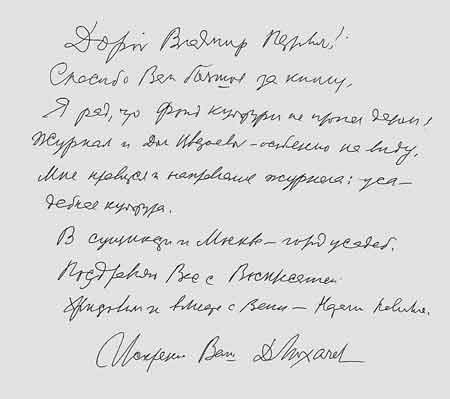 Дорогой Владимир Петрович!
Спасибо Вам большое за книгу.
Я рад, что Фонд культуры не пропал даром!
Журнал и Дом Цветаевой – особенно на виду.
Мне нравится и направление журнала: уса-
дебная культура.
В сущности и Москва – город усадеб.
Поздравляю Вас с Воскресением
Христовым и вместе с Вами –
Искренне Ваш Д Лихачев